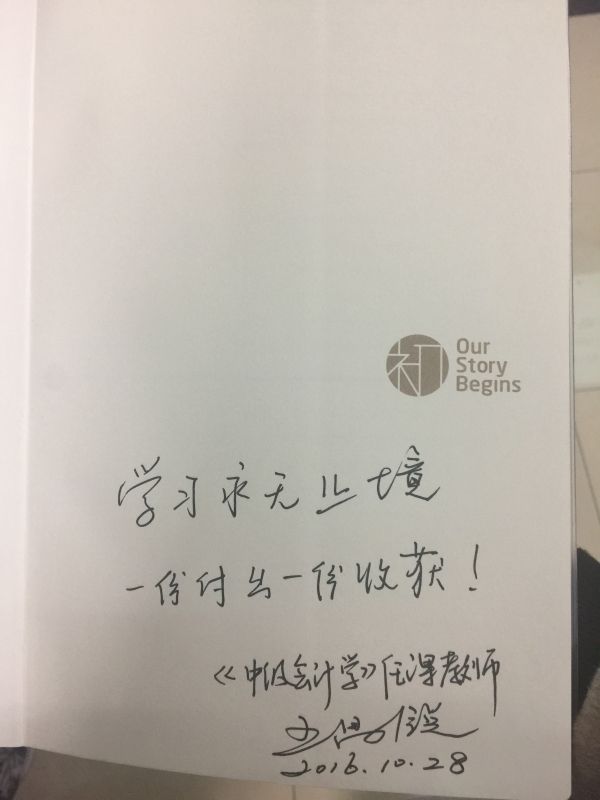 初
Our
Story
Begins
学习永无止境
一份付出一份收获！
《中级会计学》任课教师
2016.10.28